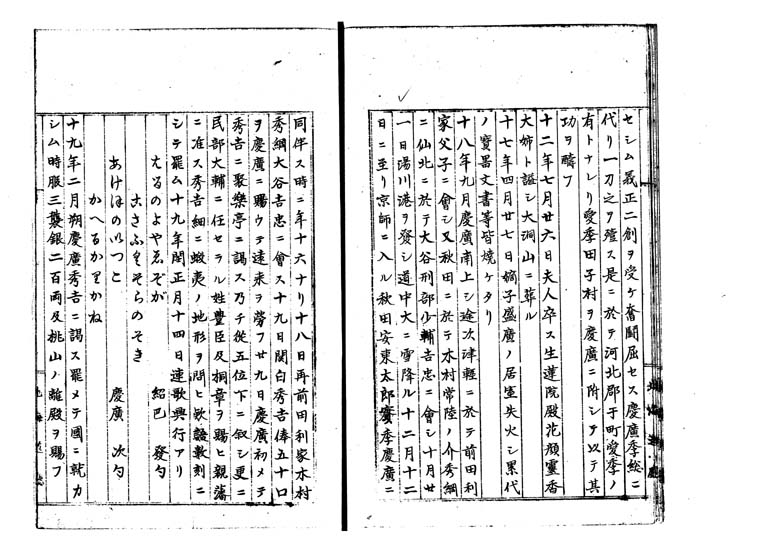 セシム義正二創ヲ受ケ奮闘屈セス慶廣季総ニ
代リ一刀之ヲ殪ス是ニ於テ河北郡千町愛季ノ
有トナレリ愛季田子村ヲ慶廣ニ附シテ以テ其
功ヲ疇フ
十二年七月廿六日夫人卒ス生蓮院殿花顔靈香
大姉ト諡シ大洞山ニ葬ル
十七年四月廿七日嫡子盛廣ノ居室失火シ累代
ノ寶器文書等皆燒ケタリ
十八年九月慶廣南上シ途次津輕ニ於テ前田利
家父子ニ會シ又秋田ニ於テ木村常陸ノ介秀綱
ニ仙北ニ於テ大谷刑部少輔吉忠ニ會シ十月廿
一日湯川港ヲ發シ道中大ニ雪降ル十二月十二
日ニ至リ京師ニ入ル秋田安東太郎實季慶廣ニ
同伴ス時ニ年十六十リ十八日再前田利家木村
秀綱大谷吉忠ニ會ス十九日関白秀吉俸五十口
ヲ慶廣ニ賜ウテ遠来ヲ勞フ廿九日慶廣初メテ
秀吉ニ聚樂亭ニ謁ス乃チ從五位下ニ叙シ更ニ
民部大輔ニ任セラル姓豊臣及桐章ヲ賜ヒ親藩
ニ准ス秀吉細ニ蝦夷ノ地形ヲ問ヒ歓談数刻ニ
シテ罷ム十九年閏正月十四日連歌興行アリ
紹巴 發句
慶廣 次句
あけほのゝいつこ
かへるかりかね
十九年二月朔慶廣秀吉ニ謁ス罷メテ國ニ就カ
シム時服三襲銀二百両及桃山ノ離殿ヲ賜フ